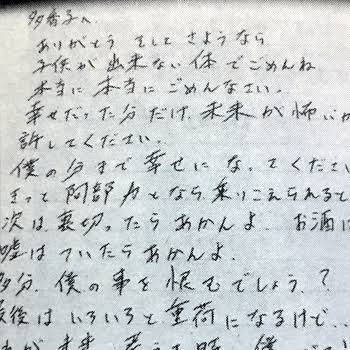 多香子へ
ありがとう そして さようなら
子供が 出来ない 体で ごめんね
本当に 本当に ごめんなさい。
幸せだった分だけ 未来が 怖い
許してください。
僕の分まで 幸せに なってくださ
きっと 阿部力となら 乗りこえられると
次は 裏切ったらあかんよ お酒
嘘は ついたらあかんよ
多分、僕の事を 恨むでしょう?
最後は いろいろと 重荷になるけど..